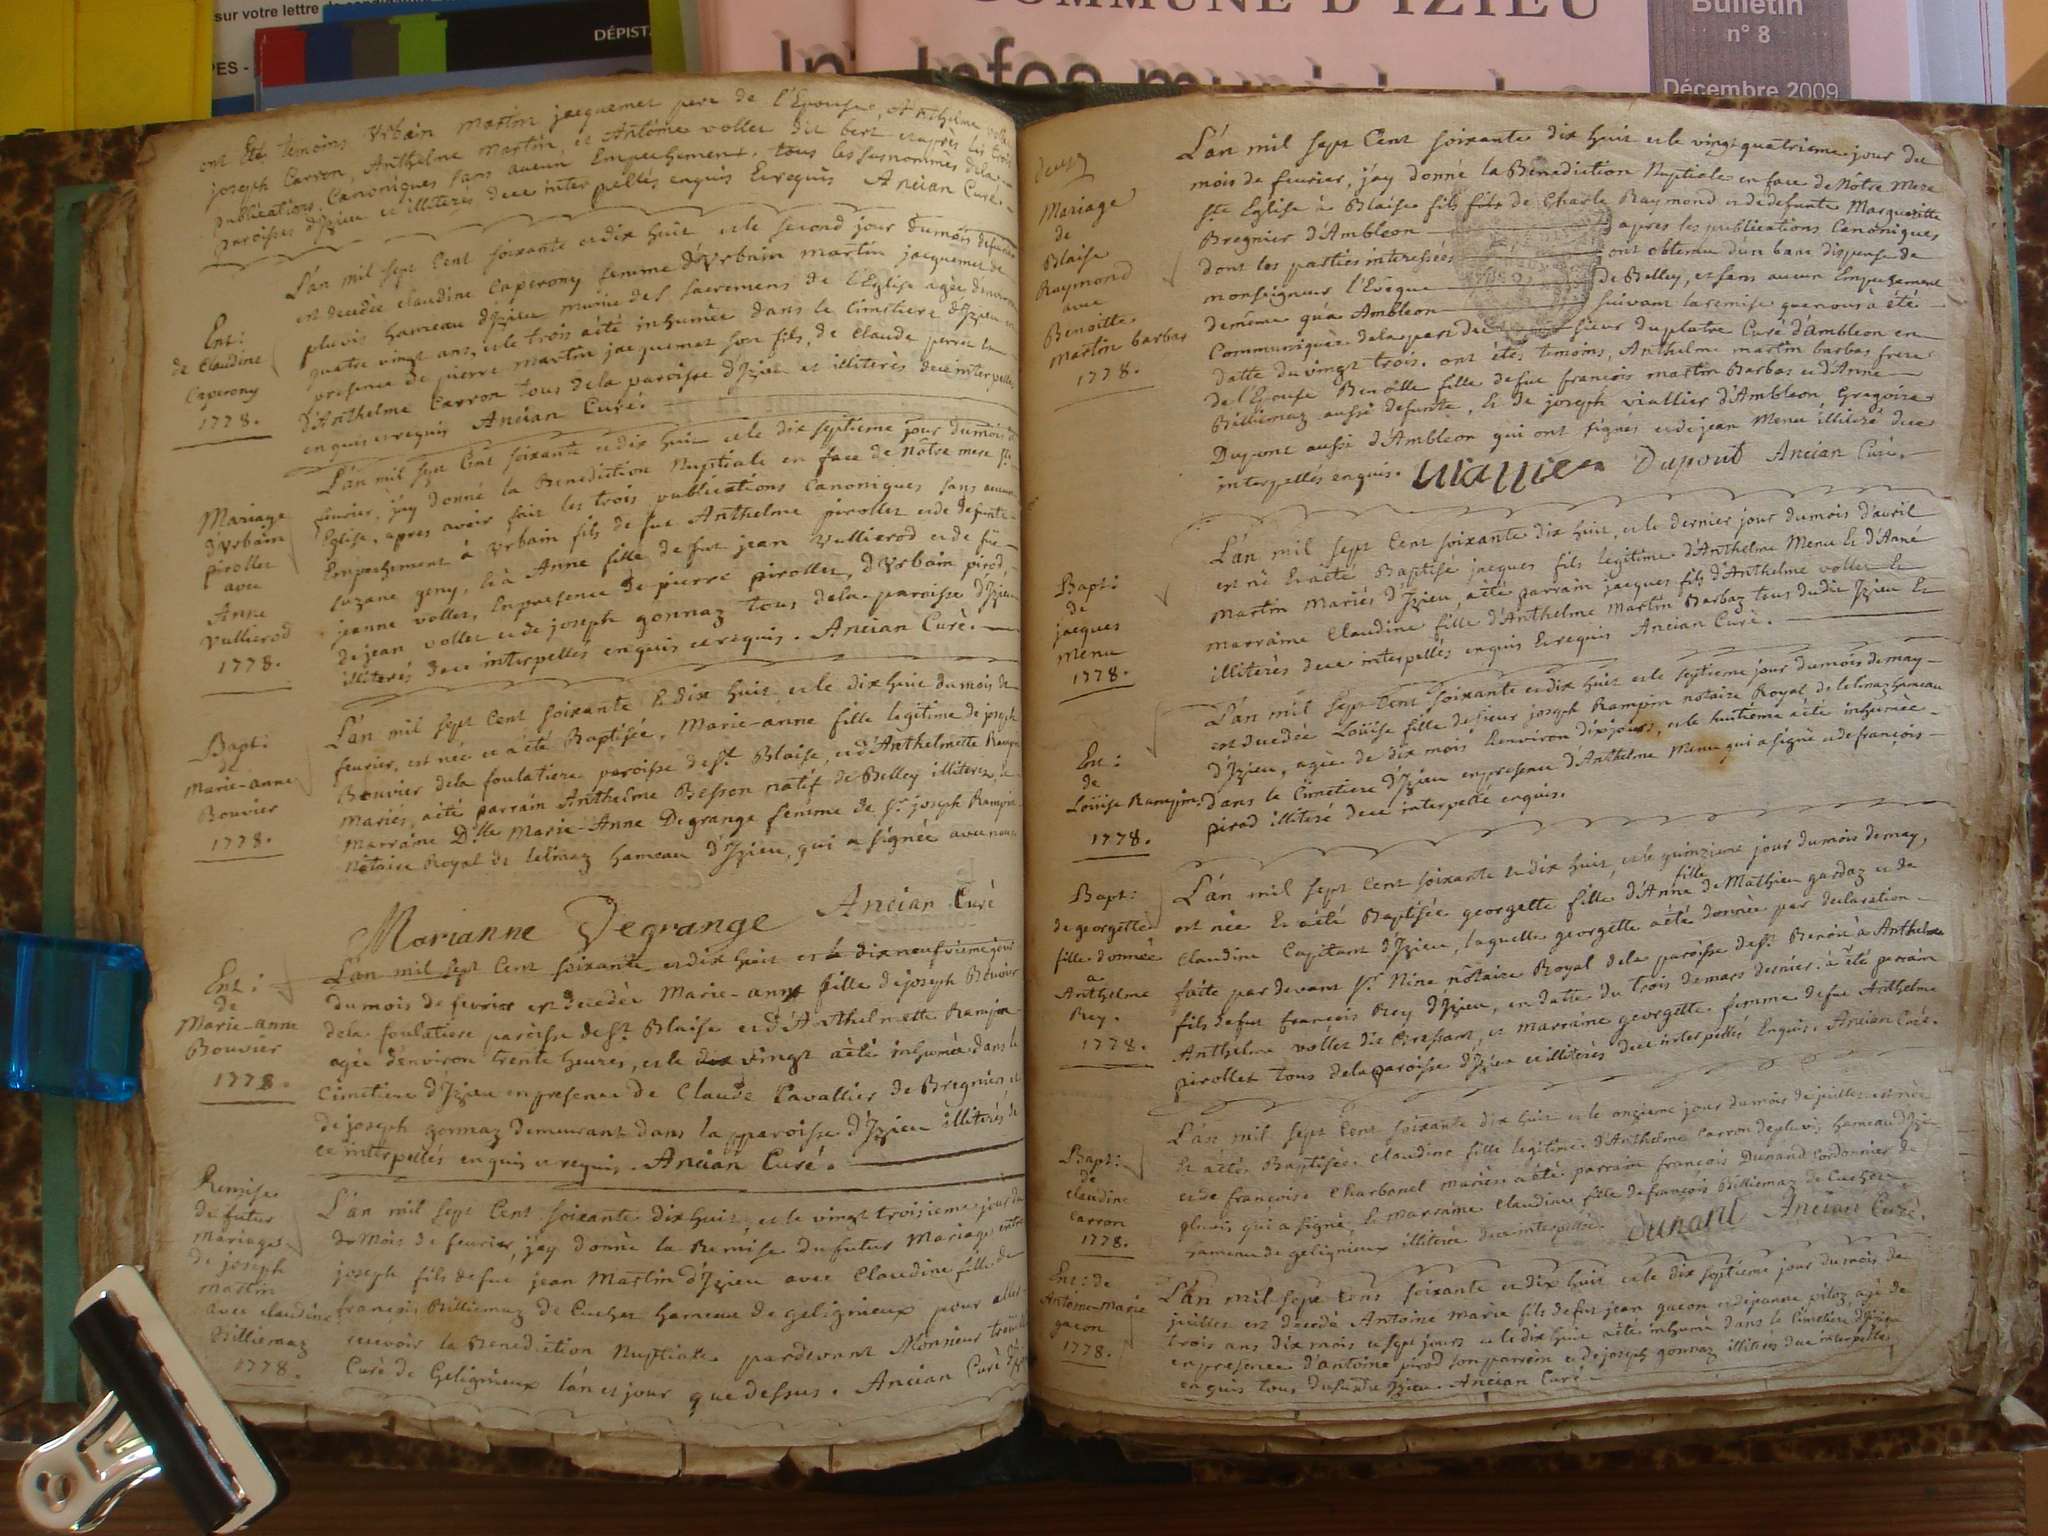 sur votre lettre
DÉPIST
PES -
COMMUNE D'IZIEU
Infos municipales
Bulletin
n° 8
Décembre 2009
ont Eté temoins Urbain Martin jacquemet pere de l'Epouse, Anthelme
joseph Carron, Anthelme Martin, et Antoine vollet dit bert et après les trois
publications Canoniques sans aucun Empechement. tous les susnommés dela
paroisse d'Izieu et illiterés de ce interpellés enquis et requis Ancian Curé.
Ent:
de Claudine
Caperony
1778.
L'an mil sept Cent soixante et dix huit et le second jour du mois de fevrier
est decedée Claudine Caperony femme d'Urbain martin jacquemet de
pluvis hameau d'Izieu munie des sacremens de l'Eglise agée d'environ
quatre vingt ans, et le trois a été inhumée dans le Cimetiere d'Izieu en
presence de pierre martin jacquemet son fils, de Claude perrin
d'Anthelme Carron tous de la paroisse d'Izieu et illiterés de ce interpellés
enquis et requis Ancian Curé.
Mariage
d'Urbain
pirollet
avec
Anne
Vullierod
1778.
L'an mil sept Cent soixante et dix huit et le dix septieme jour du mois de
fevrier, j'ay donné la Benediction Nuptiale en face de nôtre mere Ste
Eglise, apres avoir fait les trois publications Canoniques sans aucun
Empechement à Urbain fils de fut Anthelme pirollet et de defunte
suzane geny, et à Anne fille de fut jean Vullierod et de füe
jeanne vollet, En presence de pierre pirollet, d'Urbain pirod,
de jean vollet et de joseph gonnaz tous de la paroisse d'Izieu
illiterés de ce interpellés enquis et requis. Ancian Curé.
Bapt:
de
Marie-anne
Bouvier
1778.
L'an mil sept Cent soixante et dix huit et le dix huit du mois de
fevrier, est née et a été Baptisée, Marie-anne fille legitime de joseph
Bouvier dela foulatiere paroisse de St Blaise, et d'Anthelmette Rampin
mariés, a été parrain Anthelme Besson natif de Belley illiteré, et
marraine Dlle Marie-Anne Degrange femme de Sr joseph Rampin
notaire Royal de lelinaz hameau d'Izieu, qui a signée avec nous
Marianne Degrange Ancian Curé
Ent:
de
Marie-anne
Bouvier
1778.
L'an mil sept Cent soixante et dix huit et le dix neufvieme jour
du mois de fevrier est decedée Marie-anne fille de joseph Bouvier
dela foulatiere paroisse de St Blaise et d'Anthelmette Rampin
agée d'environ trente heures, et le dix vingt a été inhumée dans le
Cimetiere d'Izieu en presence de Claude Cavallier de Bregnier, et
de joseph gonnaz demeurant dans la paroisse d'Izieu illiterés de
ce interpellés enquis et requis. Ancian Curé.
Remise
du futur
Mariage
de joseph
martin
avec claudine
Billiemaz
1778.
L'an mil sept Cent soixante dix huit, et le vingt troisieme jour du
du Mois de fevrier, j'ay donné la Remise du futur Mariage entre
joseph fils de fut jean Martin d'Izieu avec Claudine fille de
françois Billiemaz de Cuchet hameau de gelignieux pour aller
recevoir la Benediction Nuptiale pardevant Monsieur
Curé de Gelignieux l'an et jour que dessus. Ancian Curé d'Izieu
deux
Mariage
de
Blaise
Raymond
avec
Benoitte
martin barbas
1778.
L'an mil sept Cent soixante dix huit et le vingt quatrieme jour du
mois de fevrier, j'ay donné la Benediction Nuptiale en face de Nôtre Mere
Ste Eglise à Blaise fils fils de Charle Raymond et de defunte Margueritte
Bregnier d'Ambleon après les publications Canoniques
dont les parties interessées ont obtenu d'un banc dispense de
monseigneur l'Evêque de Belley, et sans aucun Empechement
de même qu'à Ambleon suivant la remise que nous à été
Communiquée dela part du sieur duplatre Curé d'Ambleon en
datte du vingt trois. ont étés temoins, Anthelme martin barbas frere
de l'Epouse Benoitte fille de fut françois martin Barbas et d'Anne
Billiemaz aussi defunte, Et de joseph viallier d'Ambleon, Gregoire
Dupont aussi d'Ambleon qui ont signés et de jean Menu illiteré de ce
interpellés enquis. Viallier Dupont Ancian Curé.
Bapt:
de
jacques
Menu
1778.
L'an mil sept Cent soixante dix huit, et le dernier jour du mois d'avril
est né Et a été Baptisé jacques fils legitime d'Anthelme Menu Et d'Anne
Martin Mariés d'Izieu, a été parrain jacques fils d'Anthelme vollet Et
marraine Claudine fille d'Anthelme Martin Barbaz tous dudit Izieu Et
illiterés de ce interpellés enquis Et requis Ancian Curé.
Ent:
de
Loüise Rampin
1778.
L'an mil sept Cent soixante et dix huit et le septieme jour du mois de may
est decedée Loüise fille de sieur joseph Rampin notaire Royal de lelinaz hameau
d'Izieu, agée de dix mois Et environ dix jours, et le huitieme a été inhumée
dans le Cimetiere d'Izieu en presence d'Anthelme Menu qui a signé et de françois
pirod illiteré de ce interpellé enquis.
Bapt:
de georgette
fille donnée
a
Anthelme
Rey.
1778.
L'an mil sept Cent soixante et dix huit, et le quinzieme jour du mois de may,
est née Et a été Baptisée georgette fille d'Anne fille de Mathieu gardaz et de
Claudine Capitant d'Izieu, laquelle georgette a été donnée par declaration
faite par devant Sr Nine nôtaire Royal dela paroisse de St Benoit à Anthelme
fils de fut françois Rey d'Izieu, en datte du trois de mars dernier. à été parrain
Anthelme vollet dit Cressant, et marraine georgette femme de fut Anthelme
pirollet tous dela paroisse d'Izieu et illiterés de ce interpellés Enquis. Ancian Curé.
Bapt:
de
claudine
Carron
1778.
L'an mil sept Cent soixante dix huit et le onzieme jour du mois de juillet est née
Et a été Baptisée Claudine fille legitime d'Anthelme Carron de pluvis hameau d'Izieu
et de françoise Charbonel mariés a été parrain françois Dunand Cordonnier de
pluvis, qui a signé, Et Marraine Claudine fille de françois Billiemaz de Cuchet
hameau de gelignieux illiterée de ce interpellée. Dunant Ancian Curé.
Ent: de
Antoine-Marie
gacon
1778.
L'an mil sept Cens soixante et dix huit et le dix septieme jour du mois de
juillet est decedé Antoine Marie fils de fut jean gacon et de jeanne pitoz, agé de
trois ans dix mois et sept jours et le dix huit a été inhumé dans le Cimetiere d'Izieu
en presence d'antoine pirod son parrein et de joseph gonnaz illiterés de ce interpellés
enquis tous dudit Izieu. Ancian Curé